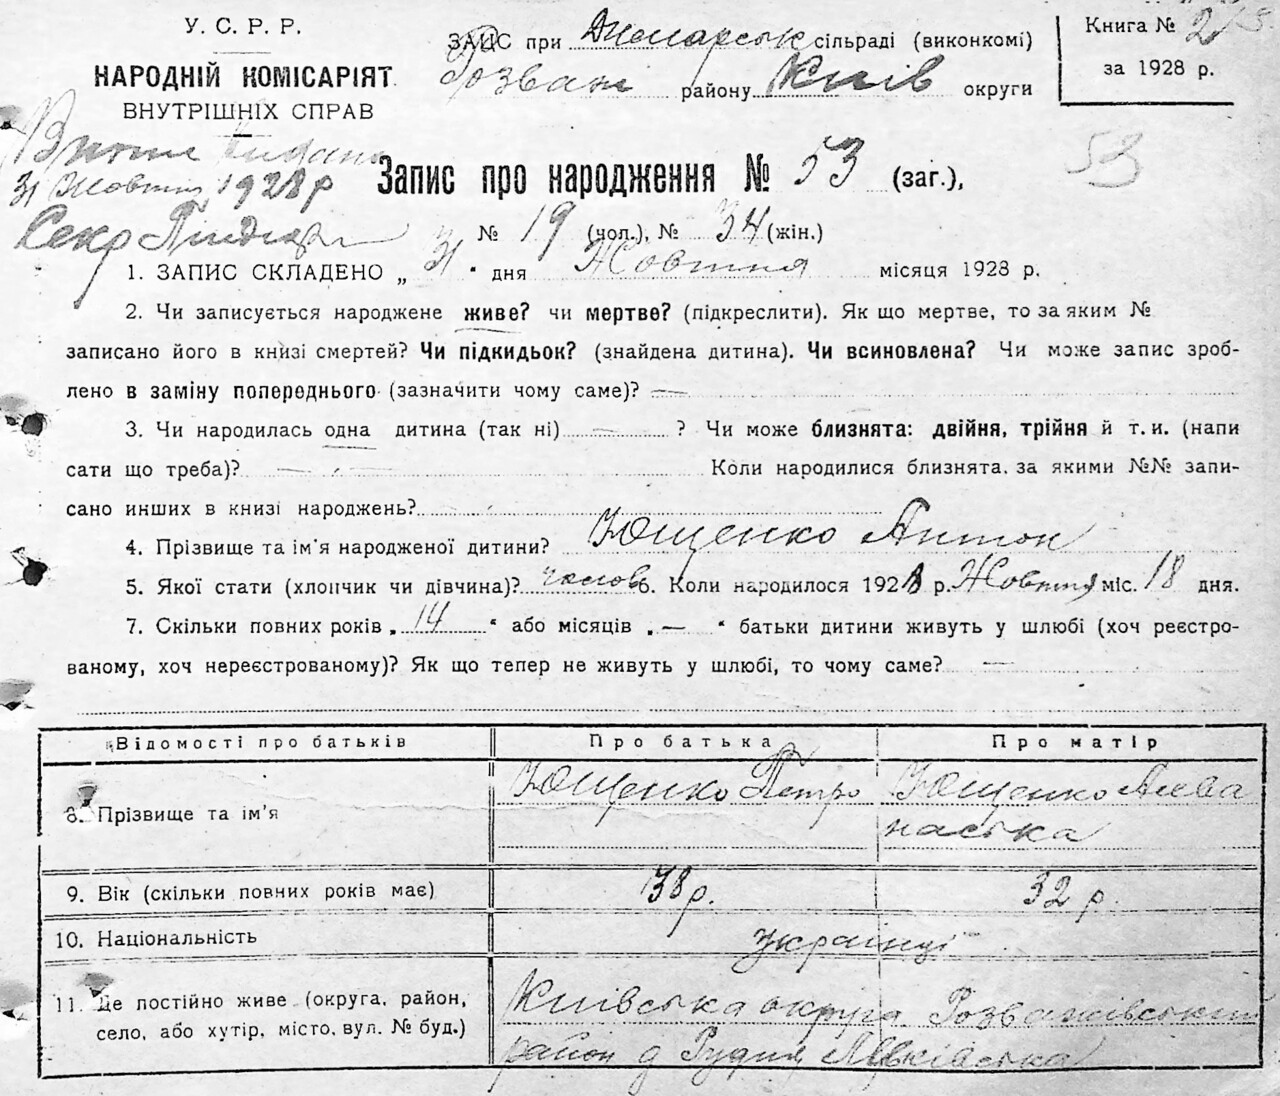 У. С. Р. Р.
НАРОДНІЙ КОМІСАРІЯТ
ВНУТРІШНІХ СПРАВ
ЗАПИС при сільраді (виконкомі)
Розваж району Київ округи
Книга № 2
за 1928 р.
Витяг видано
31 Жовтня 1928 р
Секр
53
Запис про народження № 53 (заг.),
№ 19 (чол.), № 34 (жін.)
1. ЗАПИС СКЛАДЕНО „ 31 “ дня Жовтня місяця 1928 р.
2. Чи записується народжене живе? чи мертве? (підкреслити). Як що мертве, то за яким №
записано його в книзі смертей? Чи підкидьок? (знайдена дитина). Чи всиновлена? Чи може запис зроб-
лено в заміну попереднього (зазначити чому саме)? —
3. Чи народилась одна дитина (так ні) — ? Чи може близнята: двійня, трійня й т. и. (напи
сати що треба)? — Коли народилися близнята, за якими №№ запи-
сано инших в книзі народжень?
4. Прізвище та ім'я народженої дитини? Ющенко Антон
5. Якої стати (хлопчик чи дівчина)? чолов 6. Коли народилося 1928 р. Жовтня міс. 18 дня.
7. Скільки повних років „ 14 “ або місяців „ — “ батьки дитини живуть у шлюбі (хоч реєстро-
ваному, хоч нереєстрованому)? Як що тепер не живуть у шлюбі, то чому саме? —
Відомості про батьків Про батька Про матір
8. Прізвище та ім'я Ющенко Петро Ющенко
9. Вік (скільки повних років має) 38 р. 32 р.
10. Національність Українці
11. Де постійно живе (округа, район, Київська округа Розважівський
село, або хутір, місто, вул. № буд.) район Рудня